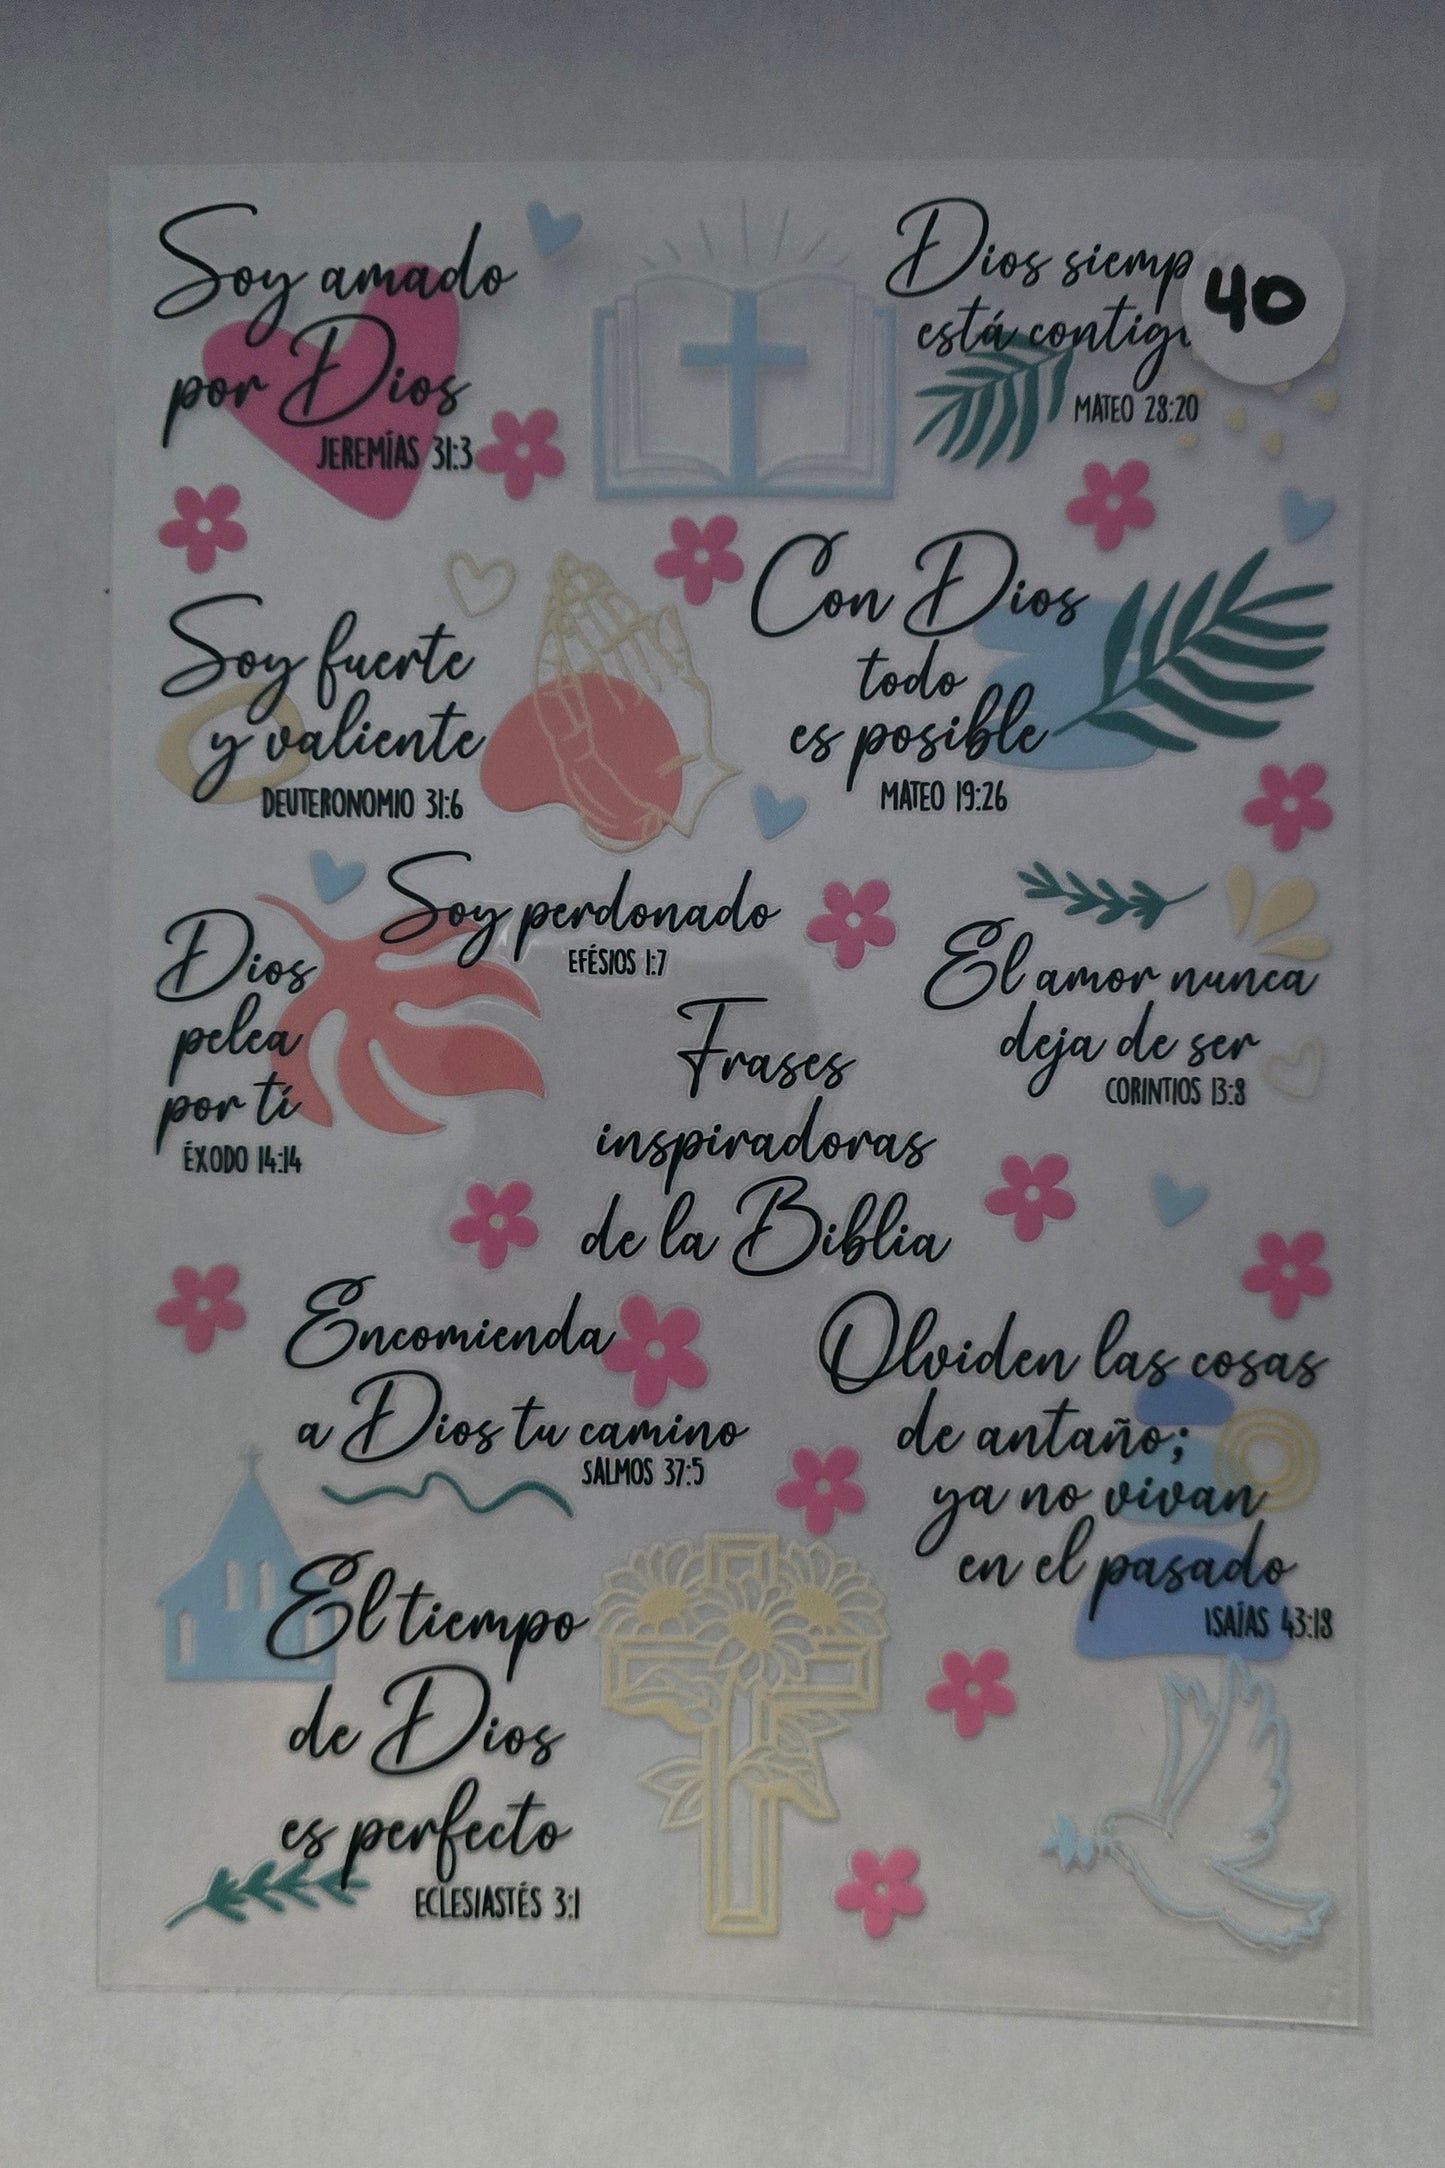 Soy amado
por Dios
JEREMÍAS 31:3
Dios siemp
está contig
MATEO 28:20
40
Soy fuerte
y valiente
DEUTERONOMIO 31:6
Con Dios
todo
es posible
MATEO 19:26
Soy perdonado
EFÉSIOS 1:7
Dios
pelea
por tí
ÉXODO 14:14
El amor nunca
deja de ser
CORINTIOS 13:8
Frases
inspiradoras
de la Biblia
Encomienda
a Dios tu camino
SALMOS 37:5
Olviden las cosas
de antaño;
ya no vivan
en el pasado
ISAÍAS 43:18
El tiempo
de Dios
es perfecto
ECLESIASTÉS 3:1